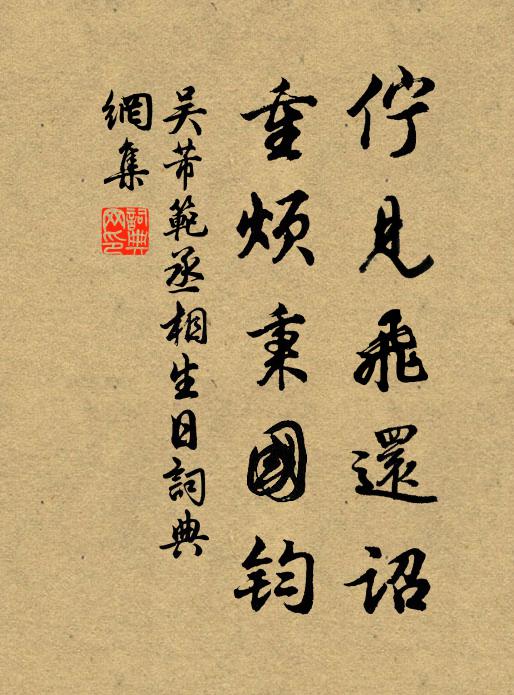 佇見飛還詔
重煩秉國鈞
吳芾範丞相生日詞典
網集
詞典
网印